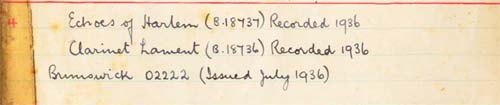 Echoes of Harlem (B.18737) Recorded 1936
Clarinet Lament (B.18736) Recorded 1936
Brunswick 02222 (Issued July 1936)